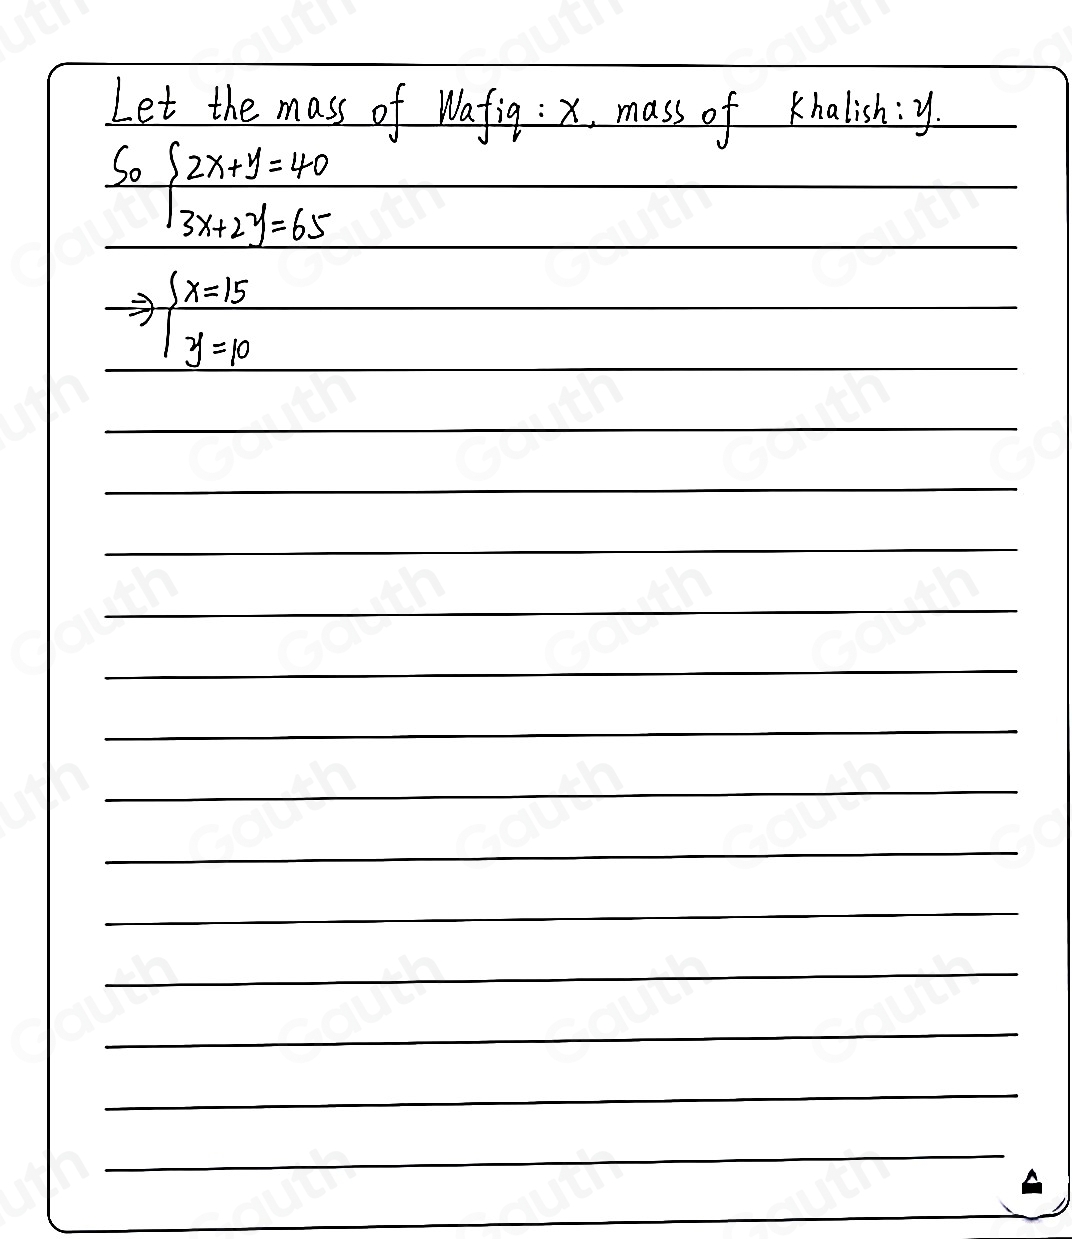 Let the mass of Wafiq : x, mass of Khalish : y.
So { 2x+y=40
3x+2y=65
⇒ { x=15
y=10
Gauth